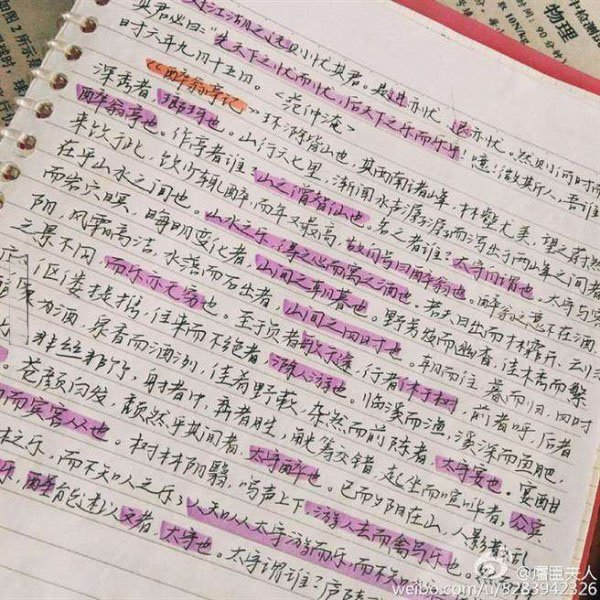 处江湖之远则忧其君。是进亦忧,退亦忧。然则何时而
其必曰:"先天下之忧而忧,后天下之乐而乐乎!噫!微斯人,吾谁
时六年九月十五日。<范仲淹>
《醉翁亭记》 环滁皆山也,其西南诸峰,林壑尤美,望之蔚然
深秀者,琅琊也。山行六七里,渐闻水声潺潺而泻出于两峰之间者
醉翁亭也。作亭者谁?山之僧智仙也。名之者谁:太守自谓也。太守与客
来饮于此,饮少辄醉,而年又最高,故自号曰醉翁也。醉翁之意不在酒
在乎山水之间也。山水之乐,得之心而寓之酒也。若夫日出而林霏开,云归
而岩穴暝,晦明变化者,山间之朝暮也。野芳发而幽香,佳木秀而繁
阴,风霜高洁,水落而石出者,山间之四时也。朝而往,暮而归,四时
之景不同,而乐亦无穷也。至于负者歌于途,行者休于树,前者呼,后者
伛偻提携,往来而不绝者,滁人游也。临溪而渔,溪深而鱼肥,
泉为酒,泉香而酒洌,佳肴野蔌,杂然而前陈者,太守宴也。宴酣
非丝非竹,射者中,弈者胜,觥筹交错,起坐而喧哗者,众宾
。苍颜白发,颓然乎其间者,太守醉也。已而夕阳在山,人影散乱
而宾客从也。树林阴翳,鸣声上下,游人去而禽鸟乐也。
林之乐,而不知人之乐;人知从太守游而乐,而不知
乐,醉能述以文者,太守也。太守谓谁?庐陵
物理
@屠臣夫人
weibo.com/u/8283942326